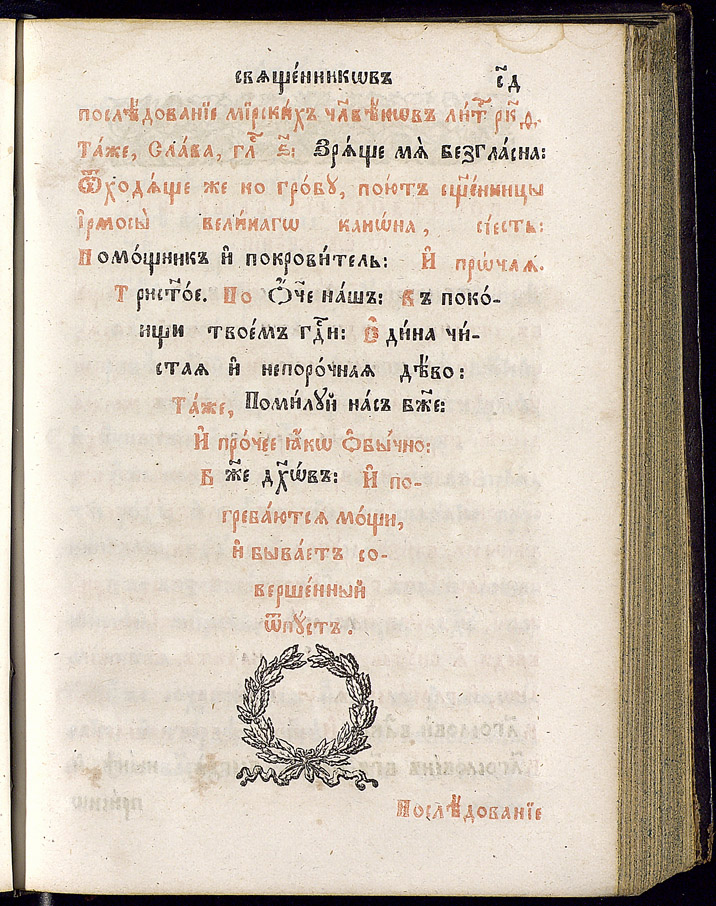 свѧще́нникѡвъ с҃д
послѣ́дованїе мїрски́хъ чл҃вѣ́кѡвъ ли́тⷭ҇ рк҃д.
Та́же, Сла́ва, гла́ⷭ҇ ѕ҃: Зрѧ́ще мѧ̀ безгла́сна:
Ѿходѧ́ще же ко гро́бꙋ, пою́тъ сщ҃е́нницы
і҆рмосы̀ вели́кагѡ канѡ́на, сїе́сть:
Помо́щникъ и҆ покрови́тель: И҆ прѡ́чаѧ.
Трист҃о́е. По Ѻ҆́ч҃е на́шъ: Въ поко́-
ищи твое́мъ гдⷭ҇и: Е҆ди́на чи́-
стаѧ и҆ непоро́чнаѧ дѣ́во:
Та́же, Поми́лꙋй на́съ бж҃е:
И҆ про́чее ꙗ҆́кѡ ѻ҆бы́чно:
Бж҃е дх҃ѡ́въ: И҆ по-
греба́ютсѧ мо́щи,
и҆ быва́етъ со-
верше́нный
ѿпꙋ́стъ.
Послѣ́дованїе